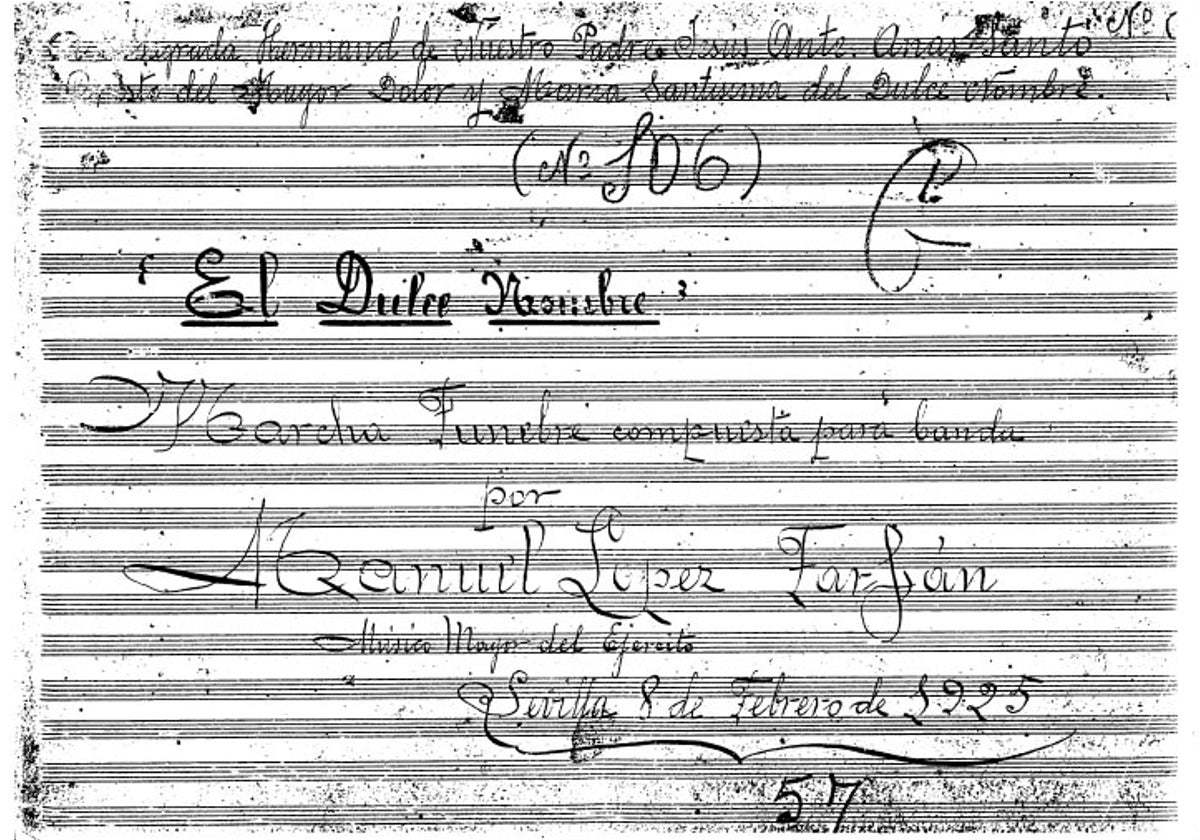 Nº
Hermand de Nuestro Padre Jesus Ante Anas Santo
del Mayor Dolor y Maria Santisima del Dulce Nombre.
(Nº 106)
"El Dulce Nombre"
Marcha Fúnebre compuesta para banda
por
Manuel López Farfán
Músico Mayor del Ejercito
Sevilla 8 de Febrero de 1925
57